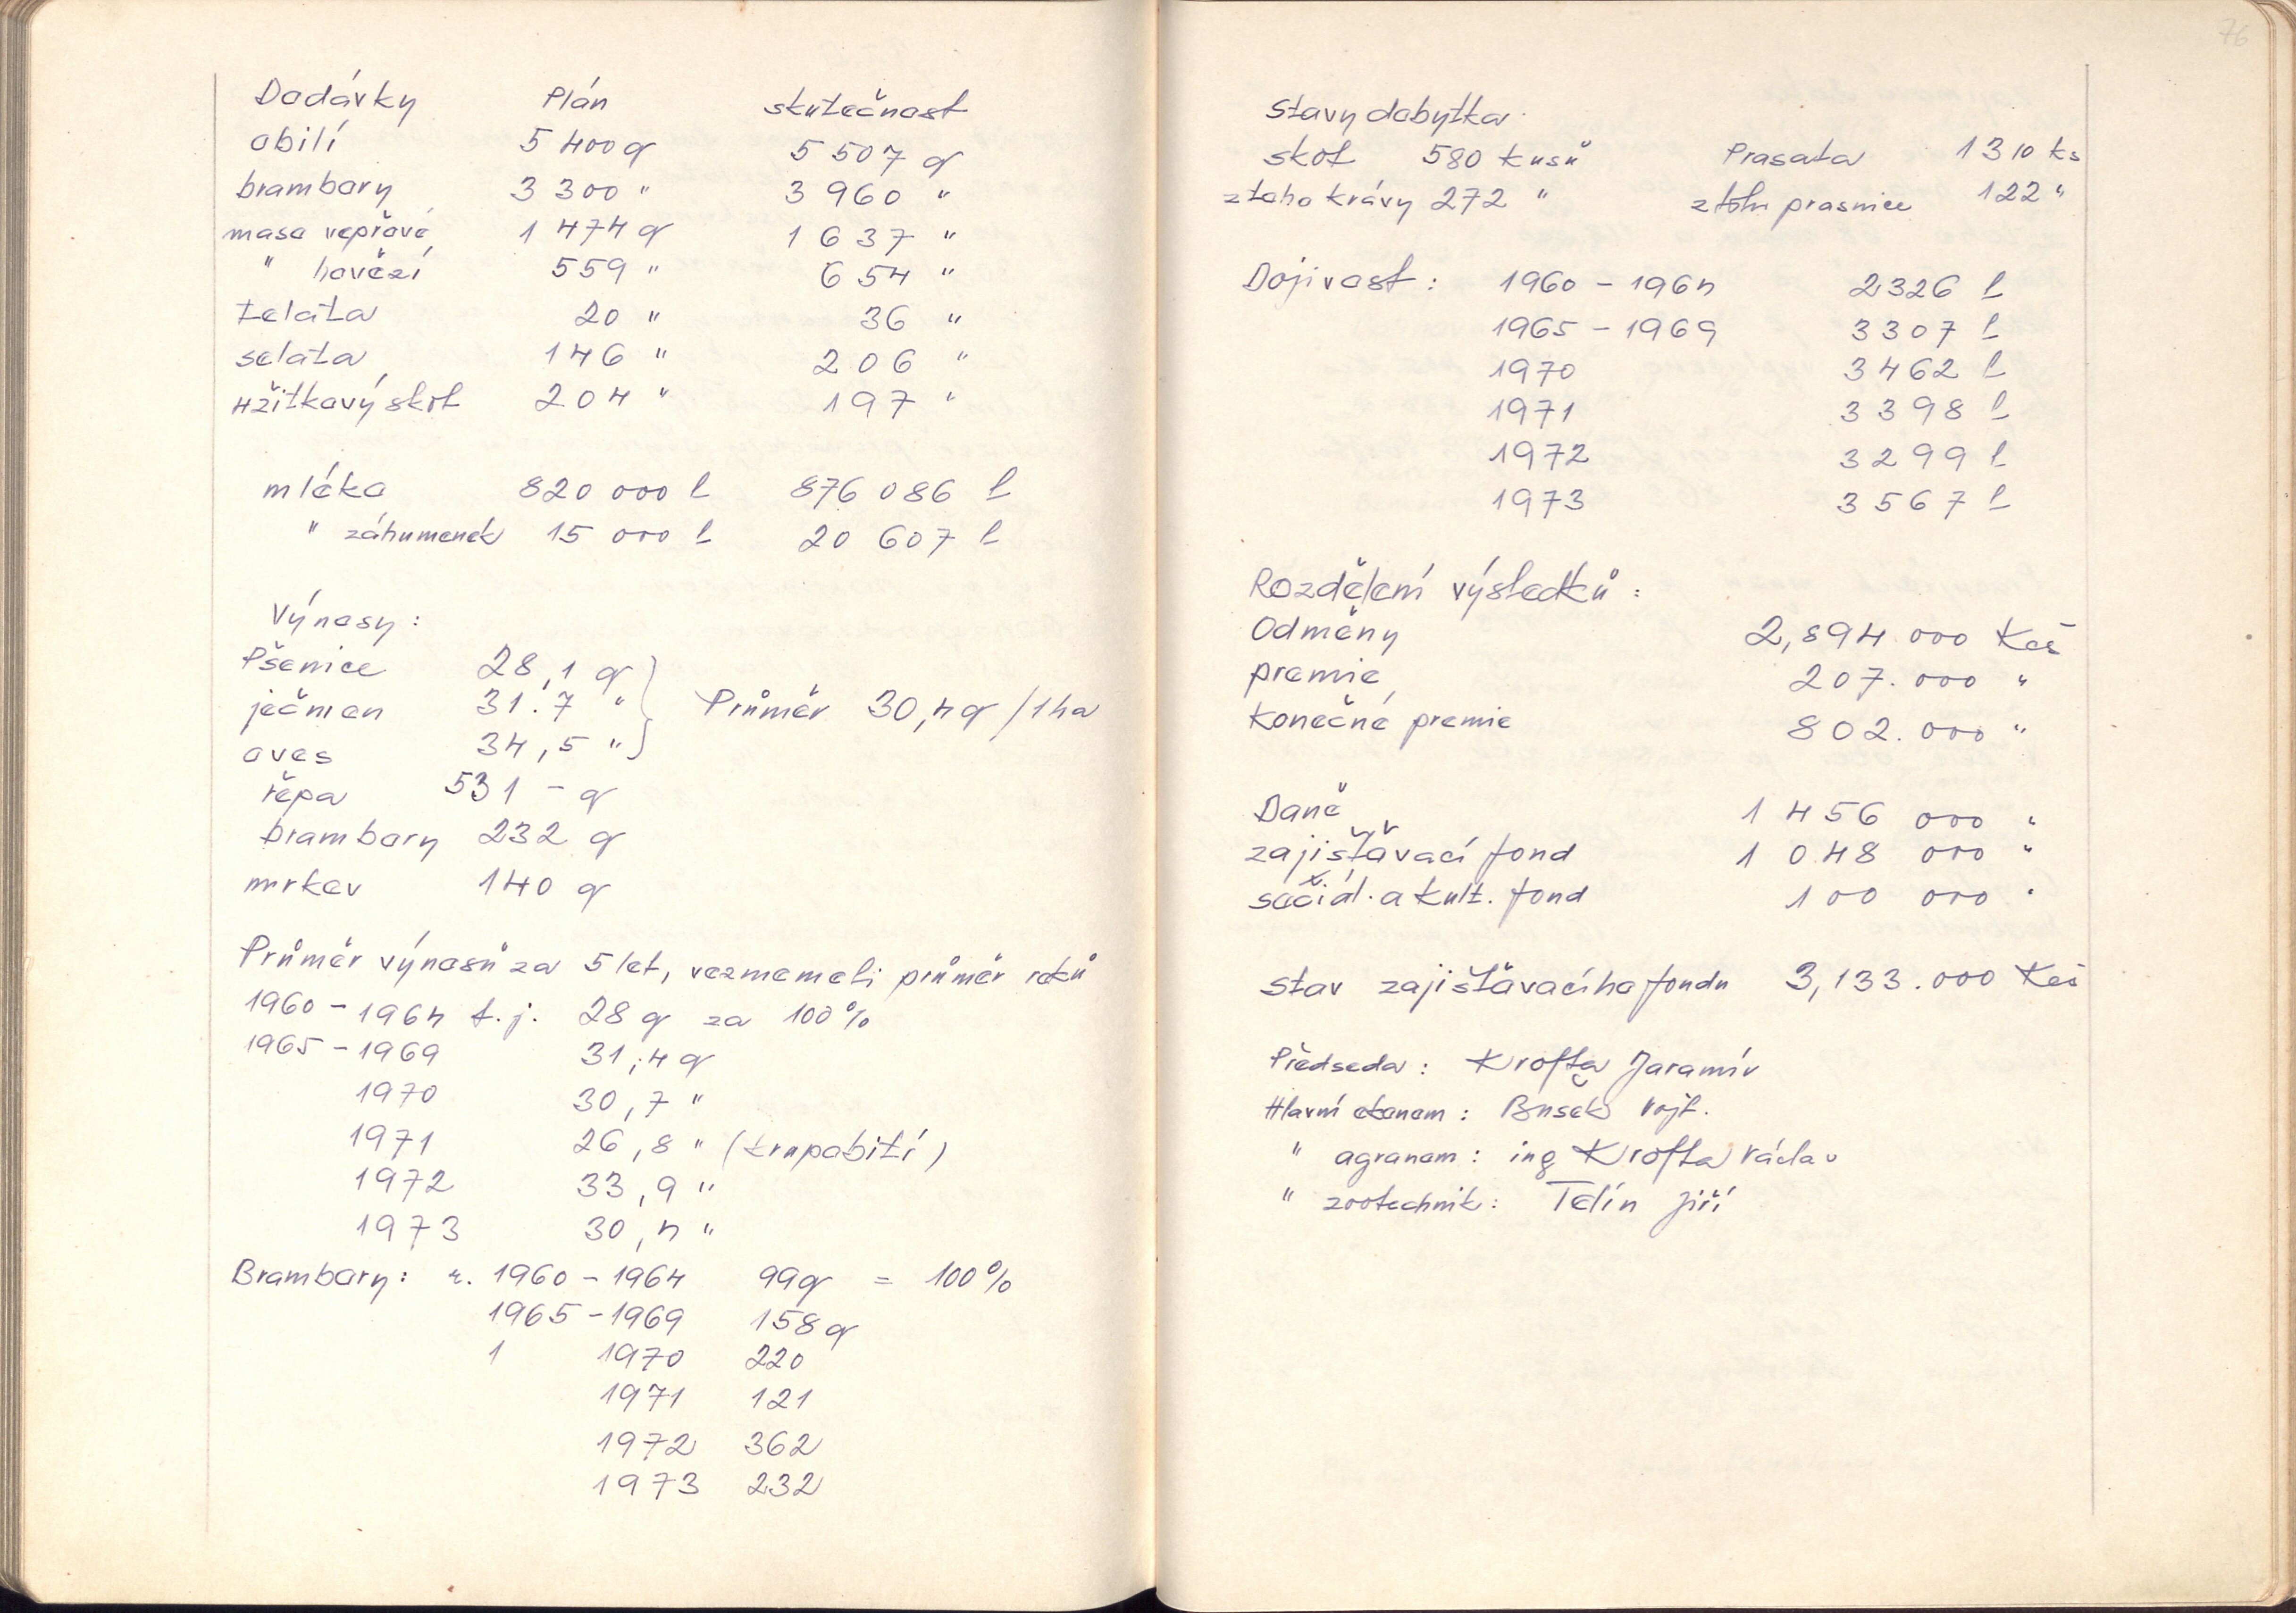 Dodávky Plán skutečnost
obilí 5 400 q 5 507 q
brambory 3 300 " 3 960 "
maso vepřové 1 474 q 1 637 "
" hovězí 559 " 654 "
telata 20 " 36 "
selata 146 " 206 "
užitkový skot 204 " 197 "
mléko 820 000 l 876 086 l
" záhumenek 15 000 l 20 607 l
Výnosy :
Pšenice 28,1 q
ječmen 31.7 " Průměr 30,4 q /1ha
oves 34,5 "
řepa 531 - q
brambory 232 q
mrkev 140 q
Průměr výnosů za 5 let, vezmemeli průměr roků
1960 - 1964 t.j. 28 q za 100 %
1965 - 1969 31,4 q
1970 30,7 "
1971 26,8 " (krupobití)
1972 33,9 "
1973 30,4 "
Brambory : r. 1960 - 1964 99q = 100 %
1965 - 1969 158 q
1 1970 220
1971 121
1972 362
1973 232
76
Stavy dobytka
skot 580 kusů Prasata 1310 ks
z toho krávy 272 " z toho prasnice 122 "
Dojivost : 1960 - 1964 2326 l
1965 - 1969 3307 l
1970 3462 l
1971 3398 l
1972 3299 l
1973 3567 l
Rozdělení výsledků :
Odměny 2,894 000 Kčs
premie 207. 000 "
Konečné premie 802. 000 "
Daně 1 456 000 "
zajišťovací fond 1 048 000 "
sociál. a kult. fond 100 000 "
stav zajišťovacího fondu 3,133.000 Kčs
Předseda : Krofta Jaromír
Hlavní ekonom : Bušek Vojt.
" agronom : ing Krofta Václav
" zootechnik : Telín Jiří